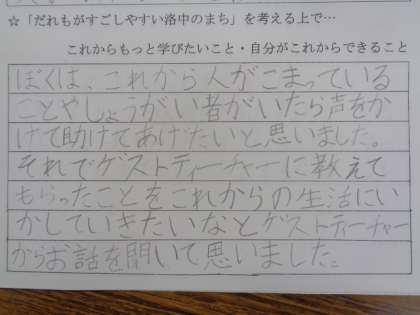 ☆「だれもがすごしやすい洛中のまち」を考える上で…
これからもっと学びたいこと・自分がこれからできること
ぼくは、これから人がこまっている
ことやしょうがい者がいたら声をか
けて助けてあげたいと思いました。
それでゲストティーチャーに教えて
もらったことをこれからの生活にい
かしていきたいなとゲストティーチャー
からお話を聞いて思いました。